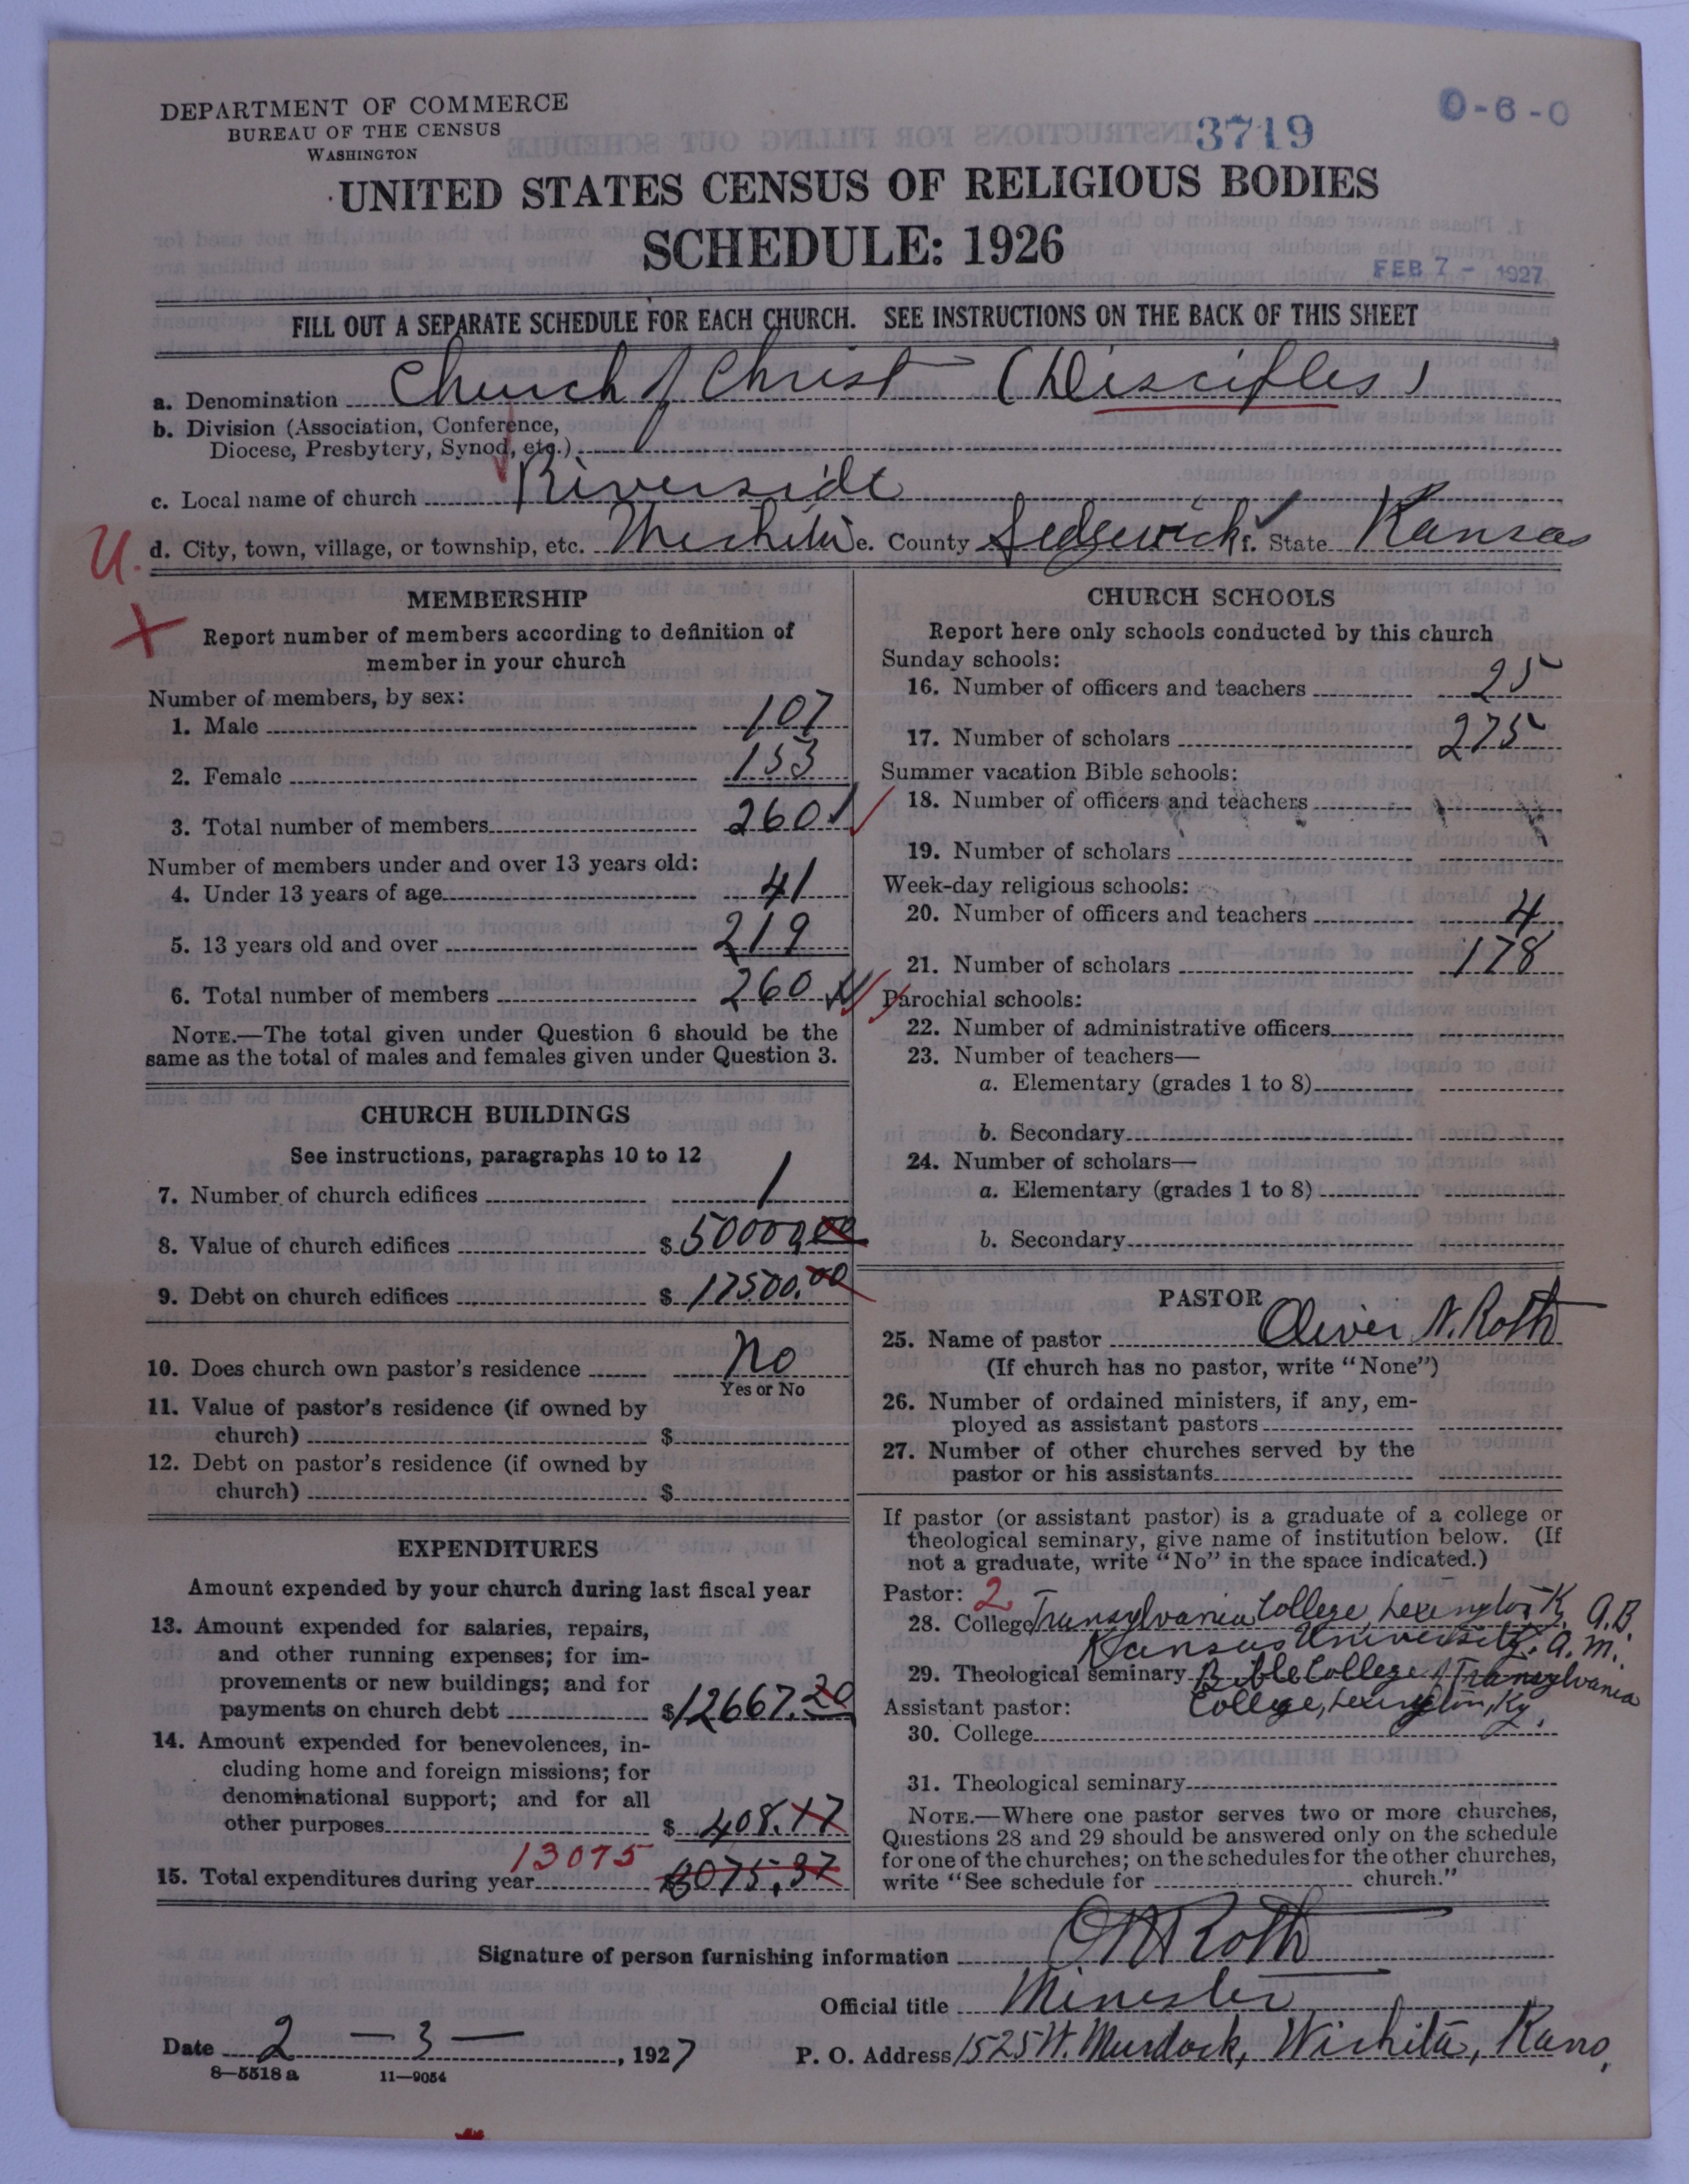 DEPARTMENT OF COMMERCE
BUREAU OF THE CENSUS
WASHINGTON
3719
0-6-0
UNITED STATES CENSUS OF RELIGIOUS BODIES
SCHEDULE: 1926
FEB 7 - 1927
FILL OUT A SEPARATE SCHEDULE FOR EACH CHURCH. SEE INSTRUCTIONS ON THE BACK OF THIS SHEET
a. Denomination Church of Christ (Disciples)
b. Division (Association, Conference,
Diocese, Presbytery, Synod, etc.)
c. Local name of church Riverside
U. d. City, town, village, or township, etc. Wichita e. County Sedgwick f. State Kansas
MEMBERSHIP
X Report number of members according to definition of
member in your church
Number of members, by sex:
1. Male 107
2. Female 153
3. Total number of members 260
Number of members under and over 13 years old:
4. Under 13 years of age 41
5. 13 years old and over 219
6. Total number of members 260
NOTE.—The total given under Question 6 should be the
same as the total of males and females given under Question 3.
CHURCH BUILDINGS
See instructions, paragraphs 10 to 12
7. Number of church edifices 1
8. Value of church edifices $ 50000.00
9. Debt on church edifices $ 17500.00
10. Does church own pastor's residence No
Yes or No
11. Value of pastor's residence (if owned by
church) $
12. Debt on pastor's residence (if owned by
church) $
EXPENDITURES
Amount expended by your church during last fiscal year
13. Amount expended for salaries, repairs,
and other running expenses; for im-
provements or new buildings; and for
payments on church debt $12667.20
14. Amount expended for benevolences, in-
cluding home and foreign missions; for
denominational support; and for all
other purposes $ 408.17
13075
15. Total expenditures during year 13075.37
CHURCH SCHOOLS
Report here only schools conducted by this church
Sunday schools:
16. Number of officers and teachers 25
17. Number of scholars 275
Summer vacation Bible schools:
18. Number of officers and teachers
19. Number of scholars
Week-day religious schools:
20. Number of officers and teachers 4
21. Number of scholars 178
Parochial schools:
22. Number of administrative officers
23. Number of teachers—
a. Elementary (grades 1 to 8)
b. Secondary
24. Number of scholars—
a. Elementary (grades 1 to 8)
b. Secondary
PASTOR
25. Name of pastor Oliver N. Roth
(If church has no pastor, write "None")
26. Number of ordained ministers, if any, em-
ployed as assistant pastors
27. Number of other churches served by the
pastor or his assistants
If pastor (or assistant pastor) is a graduate of a college or
theological seminary, give name of institution below. (If
not a graduate, write "No" in the space indicated.)
Pastor: 2
28. College Transylvania College, Lexington Ky. A.B.
Kansas University. A.M.
29. Theological seminary Bible College of Transylvania
Assistant pastor: College, Lexington, Ky.
30. College
31. Theological seminary
NOTE.—Where one pastor serves two or more churches,
Questions 28 and 29 should be answered only on the schedule
for one of the churches; on the schedules for the other churches,
write "See schedule for church."
Signature of person furnishing information O N Roth
Official title Minister
Date 2 — 3 — , 1927
P. O. Address 1525 W. Murdock, Wichita, Kans.
8—5518 a 11—9054